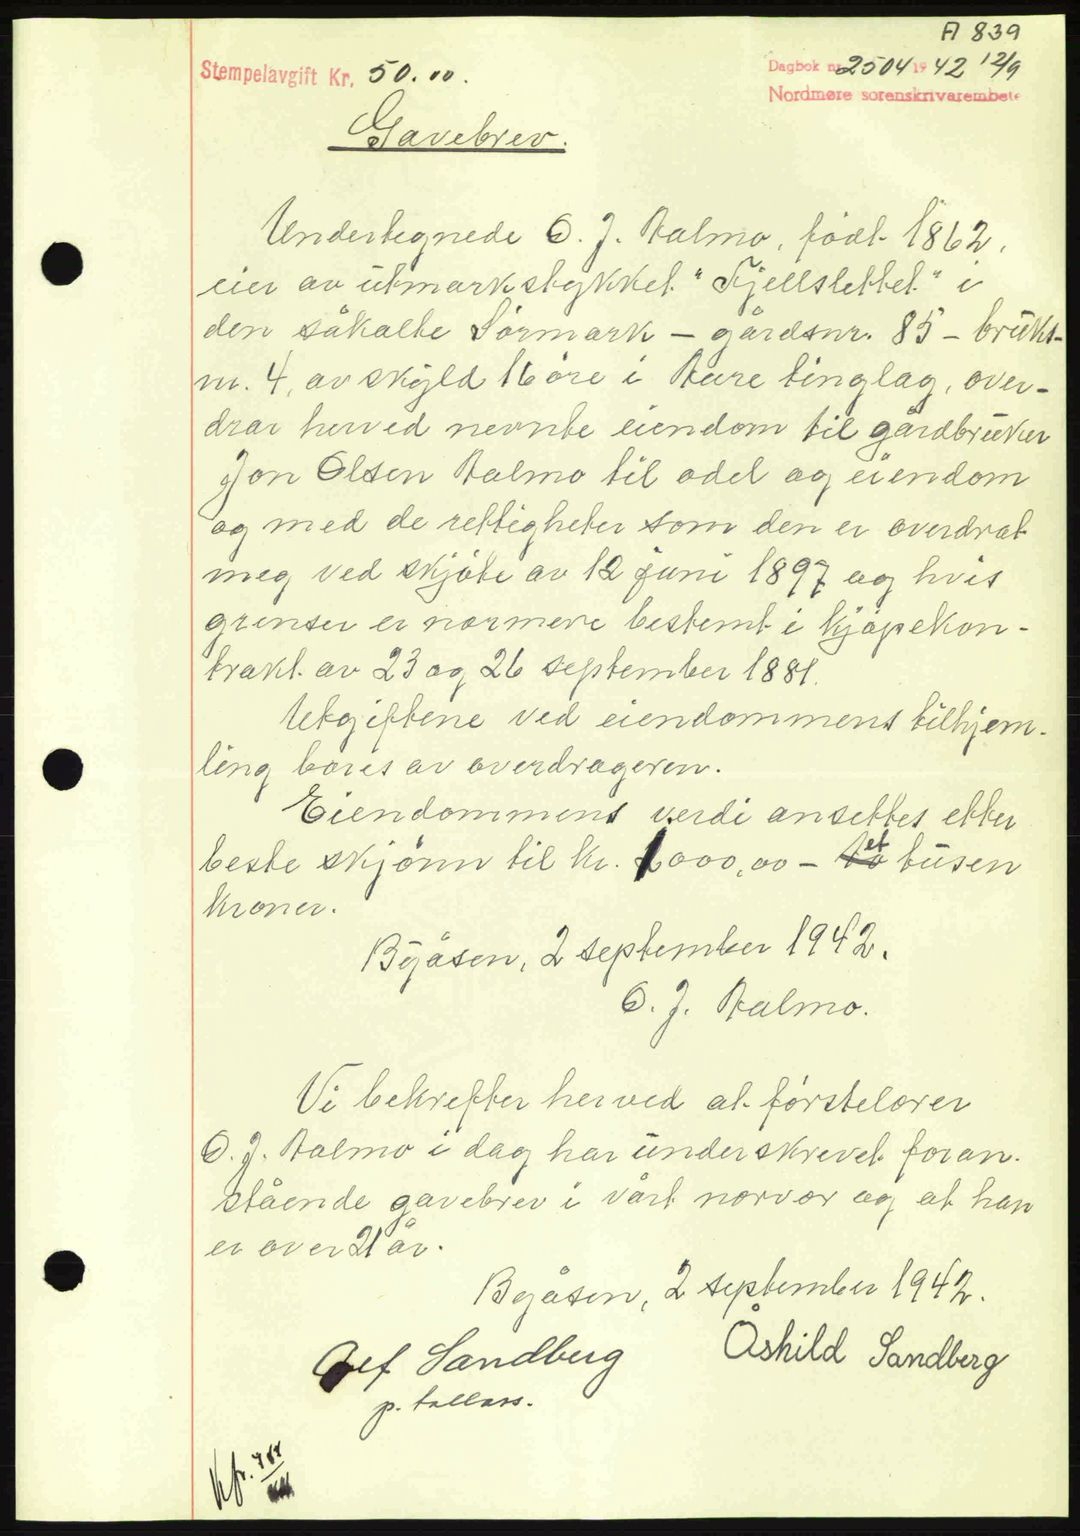 A 839
Stempelavgift Kr. 50.00.
Dagbok nr. 2504 19 42 12/9
Nordmøre sorenskrivarembete
Gavebrev.
Undertegnede O. J. Aalmo, födt 1862,
eier av utmarkstykket "Fjellslettet" i
den såkalte Sörmark – gårdsnr. 85 – bruks-
nr. 4, av skyld 16 öre i Aure tinglag, over-
drar herved nevnte eiendom til gårdbruker
Jon Olsen Aalmo til odel og eiendom
og med de rettigheter som den er overdrat
meg ved skjöte av 12 juni 1897 og hvis
grenser er nærmere bestemt i kjöpekon-
trakt av 23 og 26 september 1881.
Utgiftene ved eiendommens tilhjem-
ling bæres av overdrageren.
Eiendommens verdi ansettes etter
beste skjönn til kr. 1000,00 – et tusen
kroner.
Bjåsen, 2 september 1942.
O. J. Aalmo.
Vi bekrefter herved at förstelærer
O. J. Aalmo i dag har underskrevet foran-
stående gavebrev i vårt nærvær og at han
er over 21 år.
Bjåsen, 2 september 1942.
Sandberg
Åshild Sandberg
Kfr.